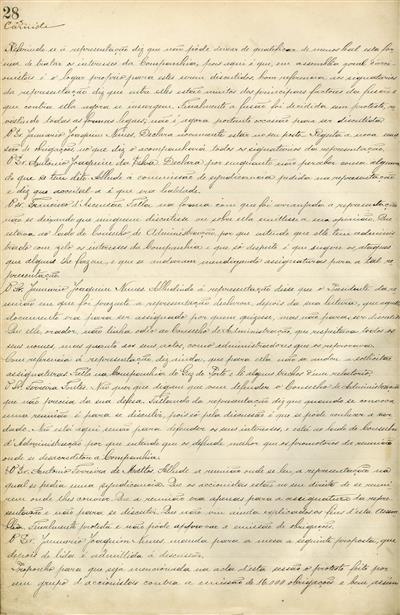 28
Carnide
Referindo se á representação diz que não póde deixar de qualificar de menos leal esta for
ma de tratar os interesses da Companhia, pois aqui é que, em assembléa geral d'accio
nistas é o logar proprio para estes serem discutidos. Com referencia aos signatarios
da representação diz que entre elles estão muitos dos principaes factores da fusão e
que contra ella agora se insurgem. Finalmente a fusão foi decidida sem protesto, re
vestindo todas as formas legaes, não é agora portanto occasião para ser discutida.
O Sr. Januario Joaquim Nunes, Declara novamente estar no seu posto. Regeita a nova emis
são de obrigações, no que diz o acompanharão todos os signatarios da representação.
O Sr. Antonio Joaquim da Silva Declara por emquanto não perceber cousa alguma
do que se tem dito. Allude á commissão de syndicancia pedida na representação
e diz que acceital-a é que era lealdade.
O Sr. Francisco d'Assumpção Falla na forma como que foi arranjada a representação
não se deixando que ninguem discutisse ou sobre ella emittisse a sua opinião. Diz
estar ao lado do Conselho de Administração, por que entende que elle tem adminis
trado com zelo os interesses da Companhia e que só despeito é que surgem os ataques
que alguns lhe fazem, e que se andaram mendigando assignaturas para a tal re
presentação.
O Sr. Januario Joaquim Nunes Alludindo á representação disse que o Presidente da re
união em que foi proposta a representação declarou, depois da sua leitura, que aquelle
documento era para ser assignado por quem quizesse, mas não para ser discutido.
Diz elle orador, não tinha odio ao Conselho de Administração, que respeitava todos os
seus nomes, mas quanto aos seus actos, como administradores que os reprovava.
Com referencia á representação diz ainda, que para ella não se andou a sollicitar
assignaturas. Falla na Companhia do Gaz do Porto e lê alguns trechos d'um relatorio.
O Sr. Ferreira Fortes. Não quer que digam que vem defender o Conselho de Administração
que não precisa da sua defeza. Tratando da representação diz que quando se convoca
uma reunião é para se discutir, pois só pela discussão é que se póde conhecer a ver
dade. Não está aqui senão para defender os seus interesses, e está ao lado do Conselho
d'Administração por que entende que os defende melhor que os promotores da reunião
onde se desacreditou a Companhia.
O Sr. Antonio Ferreira de Mattos Allude a reunião onde se leu a representação na
qual se pedia uma syndicancia. Diz os accionistas estão no seu direito de se reuni
rem onde lhes convier. Diz a reunião era apenas para a assignatura da repre
sentação e não para se discutir. Diz não vir ainda explicados os fins d'esta Assem
bléa. Finalmente protesta e não póde approvar a emissão de obrigações.
O Sr. Januario Joaquim Nunes manda para a mesa a seguinte proposta, que
depois de lida é admittida á discussão.
Proponho para que seja mencionada na acta d'esta sessão o protesto feito por
um grupo d'accionistas contra a emissão de 16.000 obrigações e bem assim